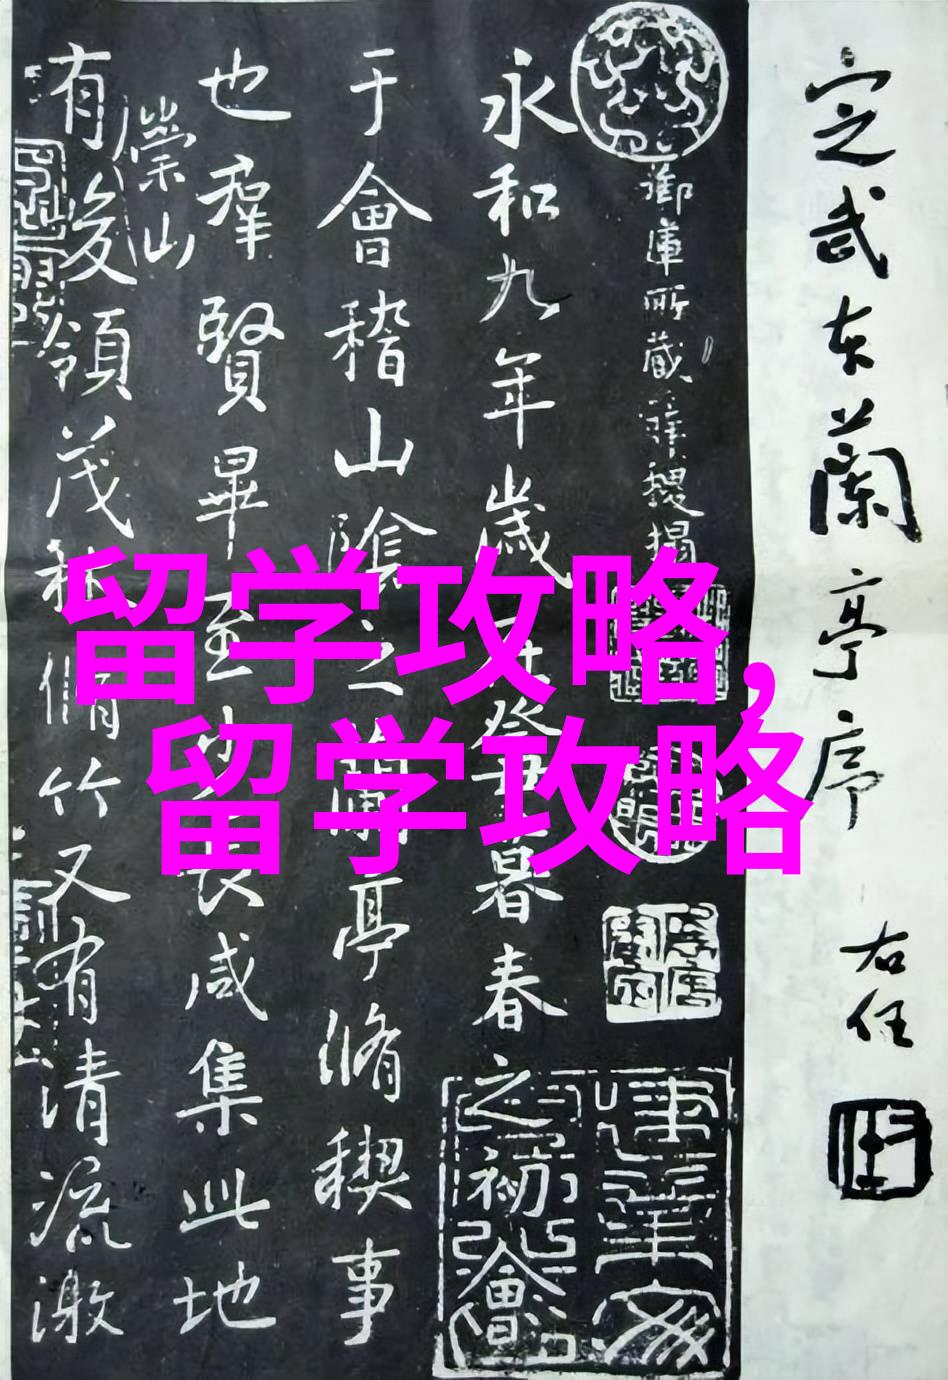 定武本蘭亭序
右任
御庫所藏
永和九年歲在癸丑暮春之初會
于會稽山陰之蘭亭脩禊事
也羣賢畢至少長咸集此地
崇山
有峻領茂林脩竹又有清流激
留学攻略,
留学攻略